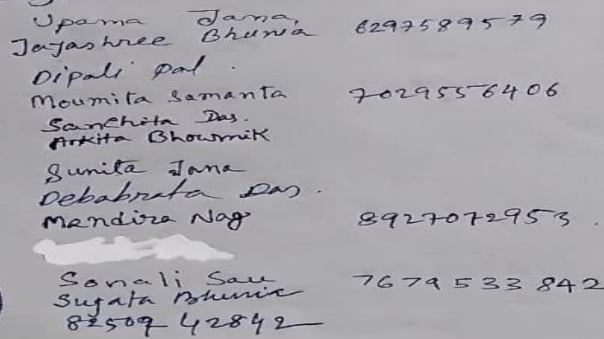 Upama Jana,
Jayashree Bhunia 6297589579
Dipali Pal.
Moumita Samanta 7029556406
Sanchita Das.
Ankita Bhowmik
Sunita Jana
Debabrata Das.
Mandira Nag 8927072953.
Sonali Sau 7679533842
Sugata Bhunia
82509 42842